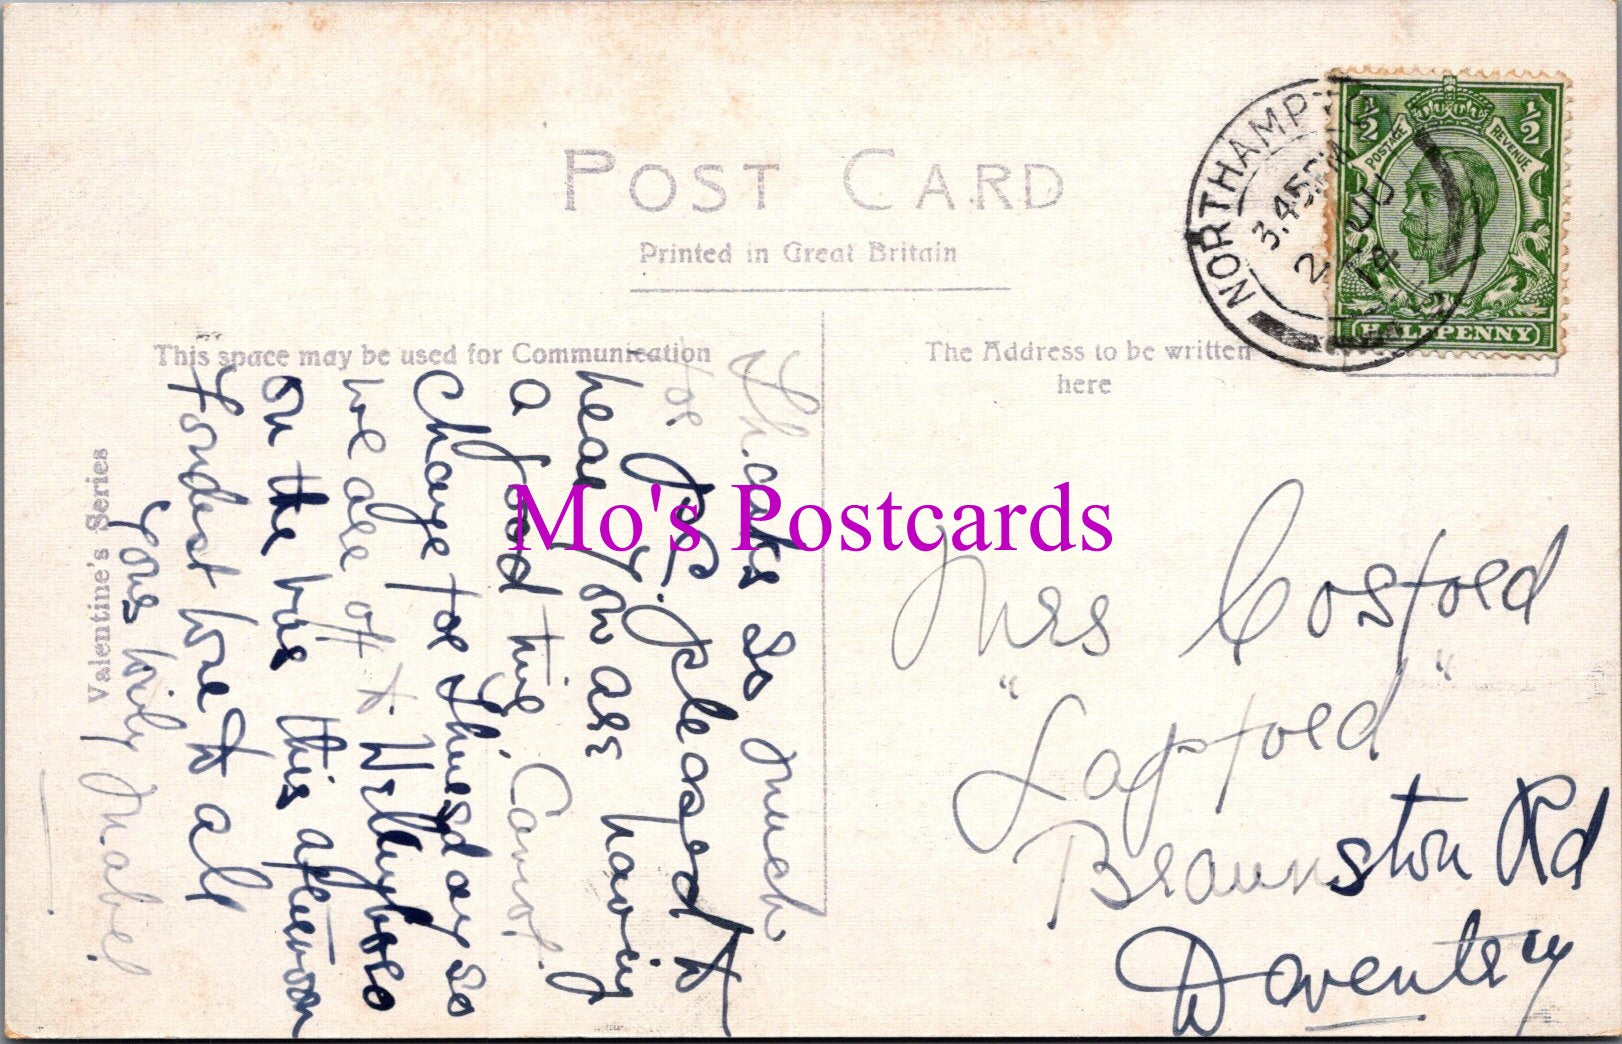 POST CARD
Printed in Great Britain
NORTHAMPTO
3.45PM
2 JU
14
½ ½
POSTAGE REVENUE
HALFPENNY
This space may be used for Communication
The Address to be written
here
Valentine's Series
Thanks so much
for P.C. pleased to
hear you are having
a good time. Cannot
change for Thursday so
we are off to Willoughboro
on the bus this afternoon
Fondest love to all
Yours Mabel
Mo's Postcards
Mrs Cosford
"Lapford"
Braunston Rd
Daventry